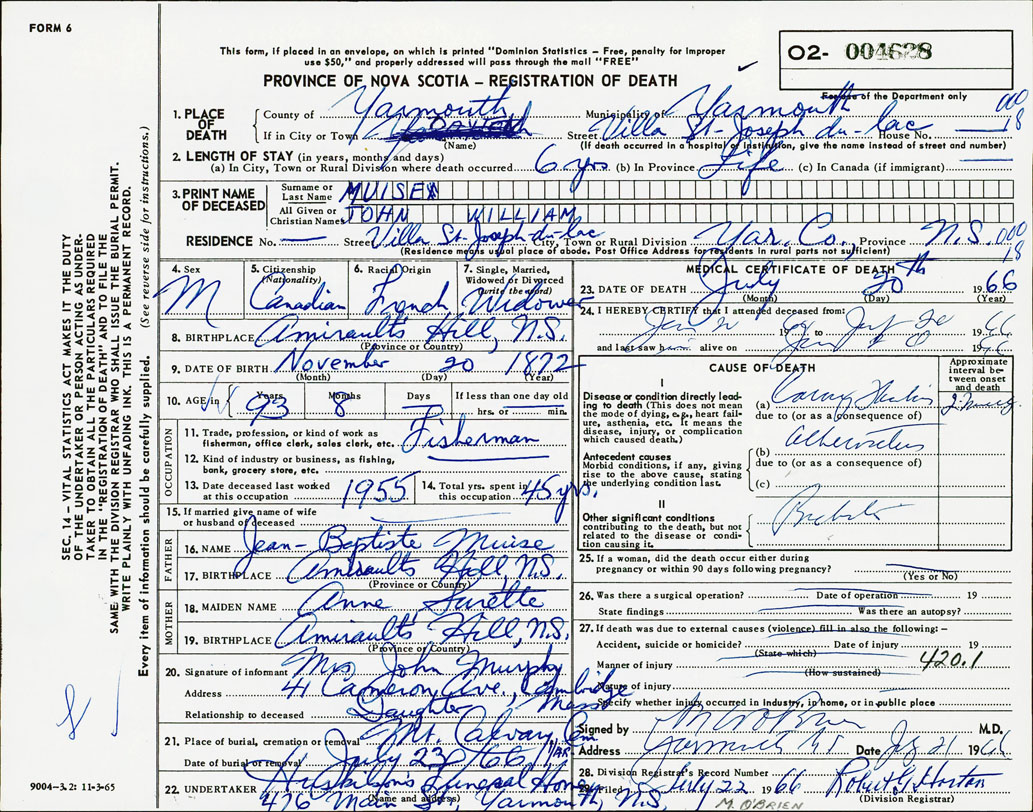 FORM 6
This form, if placed in an envelope, on which is printed "Dominion Statistics – Free, penalty for improper
use $50," and properly addressed will pass through the mail "FREE"
O2- 004628
For use of the Department only
PROVINCE OF NOVA SCOTIA – REGISTRATION OF DEATH
1. PLACE OF DEATH
County of Yarmouth Municipality of Yarmouth 000
If in City or Town (Name) Street Villa St-Joseph du-lac House No. 18
(If death occurred in a hospital or institution, give the name instead of street and number)
2. LENGTH OF STAY (in years, months and days)
(a) In City, Town or Rural Division where death occurred 6 yrs (b) In Province Life (c) In Canada (if immigrant)
3. PRINT NAME OF DECEASED
Surname or Last Name MUISE
All Given or Christian Names JOHN WILLIAM
RESIDENCE No. Street Villa St-Joseph du-lac City, Town or Rural Division Yar. Co., Province N.S. 000
(Residence means usual place of abode. Post Office Address for residents in rural parts not sufficient) 18
4. Sex M
5. Citizenship (Nationality) Canadian
6. Racial Origin French
7. Single, Married, Widowed or Divorced (write the word) Widower
8. BIRTHPLACE Amiraults Hill, N.S.
(Province or Country)
9. DATE OF BIRTH November 20 1872
(Month) (Day) (Year)
10. AGE in Years 93 Months 8 Days If less than one day old hrs. or min.
OCCUPATION
11. Trade, profession, or kind of work as fisherman, office clerk, sales clerk, etc. Fisherman
12. Kind of industry or business, as fishing, bank, grocery store, etc.
13. Date deceased last worked at this occupation 1955
14. Total yrs. spent in this occupation 45 yrs.
15. If married give name of wife or husband of deceased
FATHER
16. NAME Jean-Baptiste Muise
17. BIRTHPLACE Amiraults Hill N.S.
(Province or Country)
MOTHER
18. MAIDEN NAME Anne Surette
19. BIRTHPLACE Amiraults Hill, N.S.
(Province or Country)
20. Signature of informant Mrs John Murphy
Address 41 Cameron Ave., Cambridge Mass
Relationship to deceased Daughter
21. Place of burial, cremation or removal Mt. Calvary Cem
Date of burial or removal July 23/66 YAR
22. UNDERTAKER Huskilson's Funeral Home
(Name and address) 426 Main St., Yarmouth, N.S.
MEDICAL CERTIFICATE OF DEATH
23. DATE OF DEATH July 20th 1966
(Month) (Day) (Year)
24. I HEREBY CERTIFY that I attended deceased from:
19 to 1966
and last saw him alive on 1966
CAUSE OF DEATH
Approximate interval between onset and death
I
Disease or condition directly leading to death (This does not mean the mode of dying, e.g., heart failure, asthenia, etc. It means the disease, injury, or complication which caused death.)
(a)
due to (or as a consequence of)
Antecedent causes
Morbid conditions, if any, giving rise to the above cause, stating the underlying condition last.
(b)
due to (or as a consequence of)
(c)
II
Other significant conditions contributing to the death, but not related to the disease or condition causing it.
25. If a woman, did the death occur either during pregnancy or within 90 days following pregnancy?
(Yes or No)
26. Was there a surgical operation? Date of operation 19
State findings Was there an autopsy?
27. If death was due to external causes (violence) fill in also the following:–
Accident, suicide or homicide? Date of injury 19
(State which)
Manner of injury 420.1
(How sustained)
Nature of injury
Specify whether injury occurred in industry, in home, or in public place
Signed by M.D.
Address Yarmouth NS Date July 21 1966
28. Division Registrar's Record Number
29. Filed July 22 1966 Robert G. Horton
(Division Registrar)
M. O'BRIEN
9004–3.2: 11-3-65
SEC. 14 – VITAL STATISTICS ACT MAKES IT THE DUTY
OF THE UNDERTAKER OR PERSON ACTING AS UNDER-
TAKER TO OBTAIN ALL THE PARTICULARS REQUIRED
IN THE "REGISTRATION OF DEATH" AND TO FILE THE
SAME WITH THE DIVISION REGISTRAR WHO SHALL ISSUE THE BURIAL PERMIT.
WRITE PLAINLY WITH UNFADING INK. THIS IS A PERMANENT RECORD.
Every item of information should be carefully supplied. (See reverse side for instructions.)